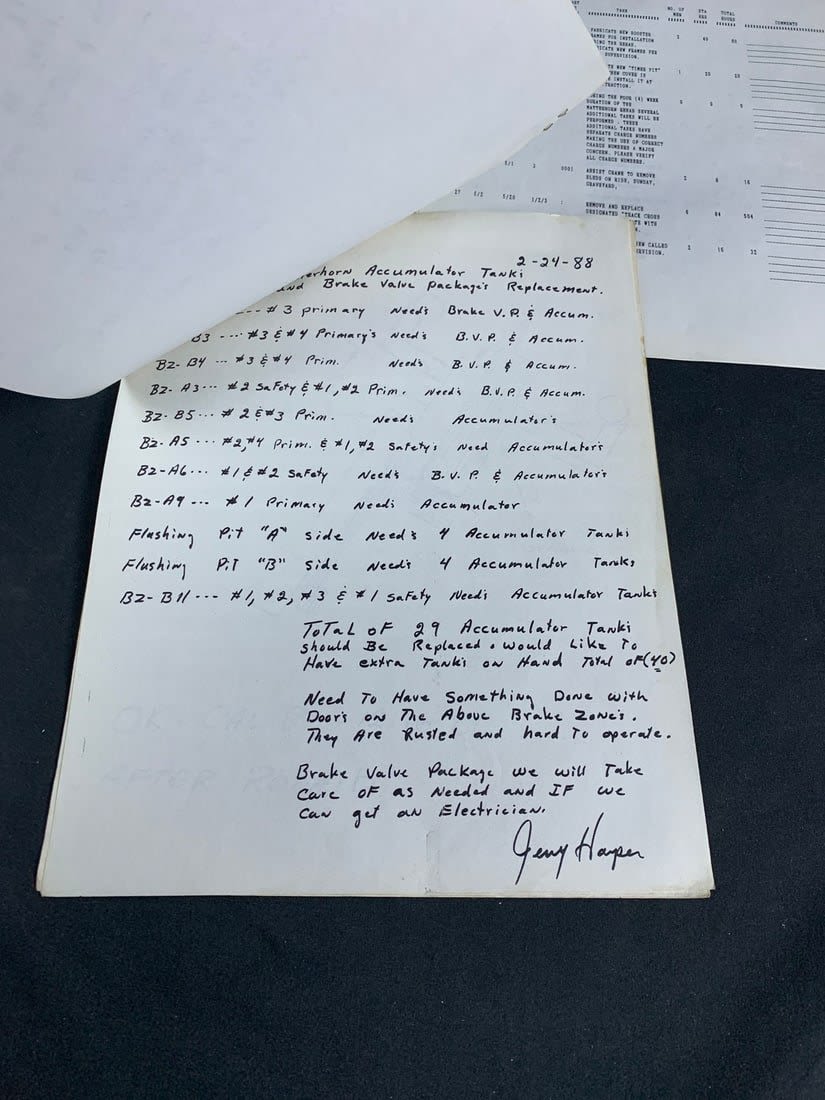 TASK
NO. OF
MEN
STA
HRS
TOTAL
HOURS
COMMENTS
FABRICATE NEW BOOSTER
FOR INSTALLATION
THE REHAB.
NEW FRAMES PER
SUPERVISION.
2 40 80
NEW "TIMER PIT"
COVER IN
INSTALL IT AT
1 20 20
THE FOUR (4) WEEK
DURATION OF THE
MATTERHORN REHAB SEVERAL
ADDITIONAL TASKS WILL BE
PERFORMED. THESE
ADDITIONAL TASKS HAVE
SEPARATE CHARGE NUMBERS
MAKING THE USE OF CORRECT
CHARGE NUMBERS A MAJOR
CONCERN. PLEASE VERIFY
ALL CHARGE NUMBERS.
0 0 0
5/1 3 0001
ASSIST CRANE TO REMOVE
SLEDS ON RIDE, SUNDAY,
GRAVEYARD.
2 8 16
27 5/2 5/20 1/2/3 :
REMOVE AND REPLACE
DESIGNATED "TRACK CROSS
WITH
6 84 504
CALLED
2 16 32
2-24-88
terhorn Accumulator Tanks
and Brake Valve package's Replacement.
--- #3 primary Need's Brake V.P. & Accum.
B3 ---- #3 & #4 Primary's Need's B.V.P. & Accum.
Bz- B4 --- #3 & #4 Prim. Need's B.V.P. & Accum.
Bz- A3--- #2 Safety & #1, #2 Prim. Need's B.V.P. & Accum.
Bz- B5--- #2 & #3 Prim. Need's Accumulator's
Bz- A5--- #2, #4 Prim. & #1, #2 Safety's Need Accumulator's
Bz-A6--- #1 & #2 Safety Need's B.V.P. & Accumulator's
Bz-A9--- #1 Primary Need's Accumulator
Flushing Pit "A" side Need's 4 Accumulator Tanks
Flushing Pit "B" side Need's 4 Accumulator Tanks
Bz- B11--- #1, #2, #3 & #1 Safety Need's Accumulator Tanks
Total of 29 Accumulator Tanks
should Be Replaced. would Like To
Have extra Tank's on Hand Total of (40)
Need To Have Something Done with
Door's on The Above Brake Zone's.
They Are Rusted and hard To operate.
Brake Valve Package we will Take
Care of as Needed and IF we
can get an Electrician.
Jerry Harper